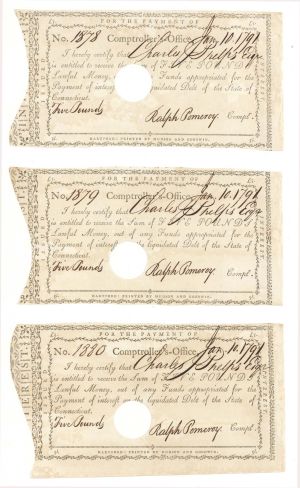 FOR THE PAYMENT OF
No. 1878 Comptroller's-Office, Jan 10. 1791
I hereby certify that Charles Phelps Esqr
is entitled to receive the Sum of FIVE POUNDS
Lawful Money, out of any Funds appropriated for the
Payment of interest on the liquidated Debt of the State of
Connecticut.
Five Pounds
Ralph Pomeroy Compt.
HARTFORD: PRINTED BY HUDSON AND GOODWIN.
FOR THE PAYMENT OF
No. 1879 Comptroller's-Office, Jan. 10. 1791
I hereby certify that Charles Phelps Esqr
is entitled to receive the Sum of FIVE POUNDS
Lawful Money, out of any Funds appropriated for the
Payment of interest on the liquidated Debt of the State of
Connecticut.
Five Pounds
Ralph Pomeroy Compt.
HARTFORD: PRINTED BY HUDSON AND GOODWIN.
FOR THE PAYMENT OF
No. 1880 Comptroller's-Office, Jan. 10. 1791
I hereby certify that Charles Phelps Esqr
is entitled to receive the Sum of FIVE POUNDS
Lawful Money, out of any Funds appropriated for the
Payment of interest on the liquidated Debt of the State of
Connecticut.
Five Pounds
Ralph Pomeroy Compt.
HARTFORD: PRINTED BY HUDSON AND GOODWIN.
INTEREST